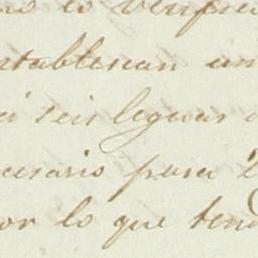 lo verifi
establescan un
seis leguas
cesario para
or lo que tend